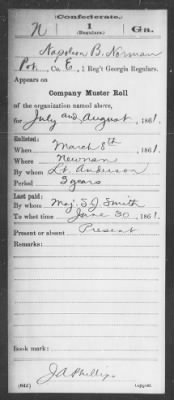 Confederate.
N 1 Ga.
(Regulars.)
Napoleon B. Norman
Pvt, Co. E, 1 Reg't Georgia Regulars.
Appears on
Company Muster Roll
of the organization named above,
for July and August, 1861.
Enlisted:
When March 8th, 1861.
Where Newnan
By whom Lt. Anderson
Period 3 years
Last paid:
By whom Maj. S. J. Smith
To what time June 30, 1861.
Present or absent Present
Remarks:
Book mark:
(642) J A Phillips
Copyist.